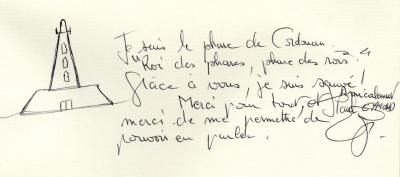 Je suis le phare de Cordouan
Roi des phares, phare des rois
Grâce à vous, je suis sauvé !
Merci pour tout, et
Amicalement
merci de me permettre de
pouvoir en parler.